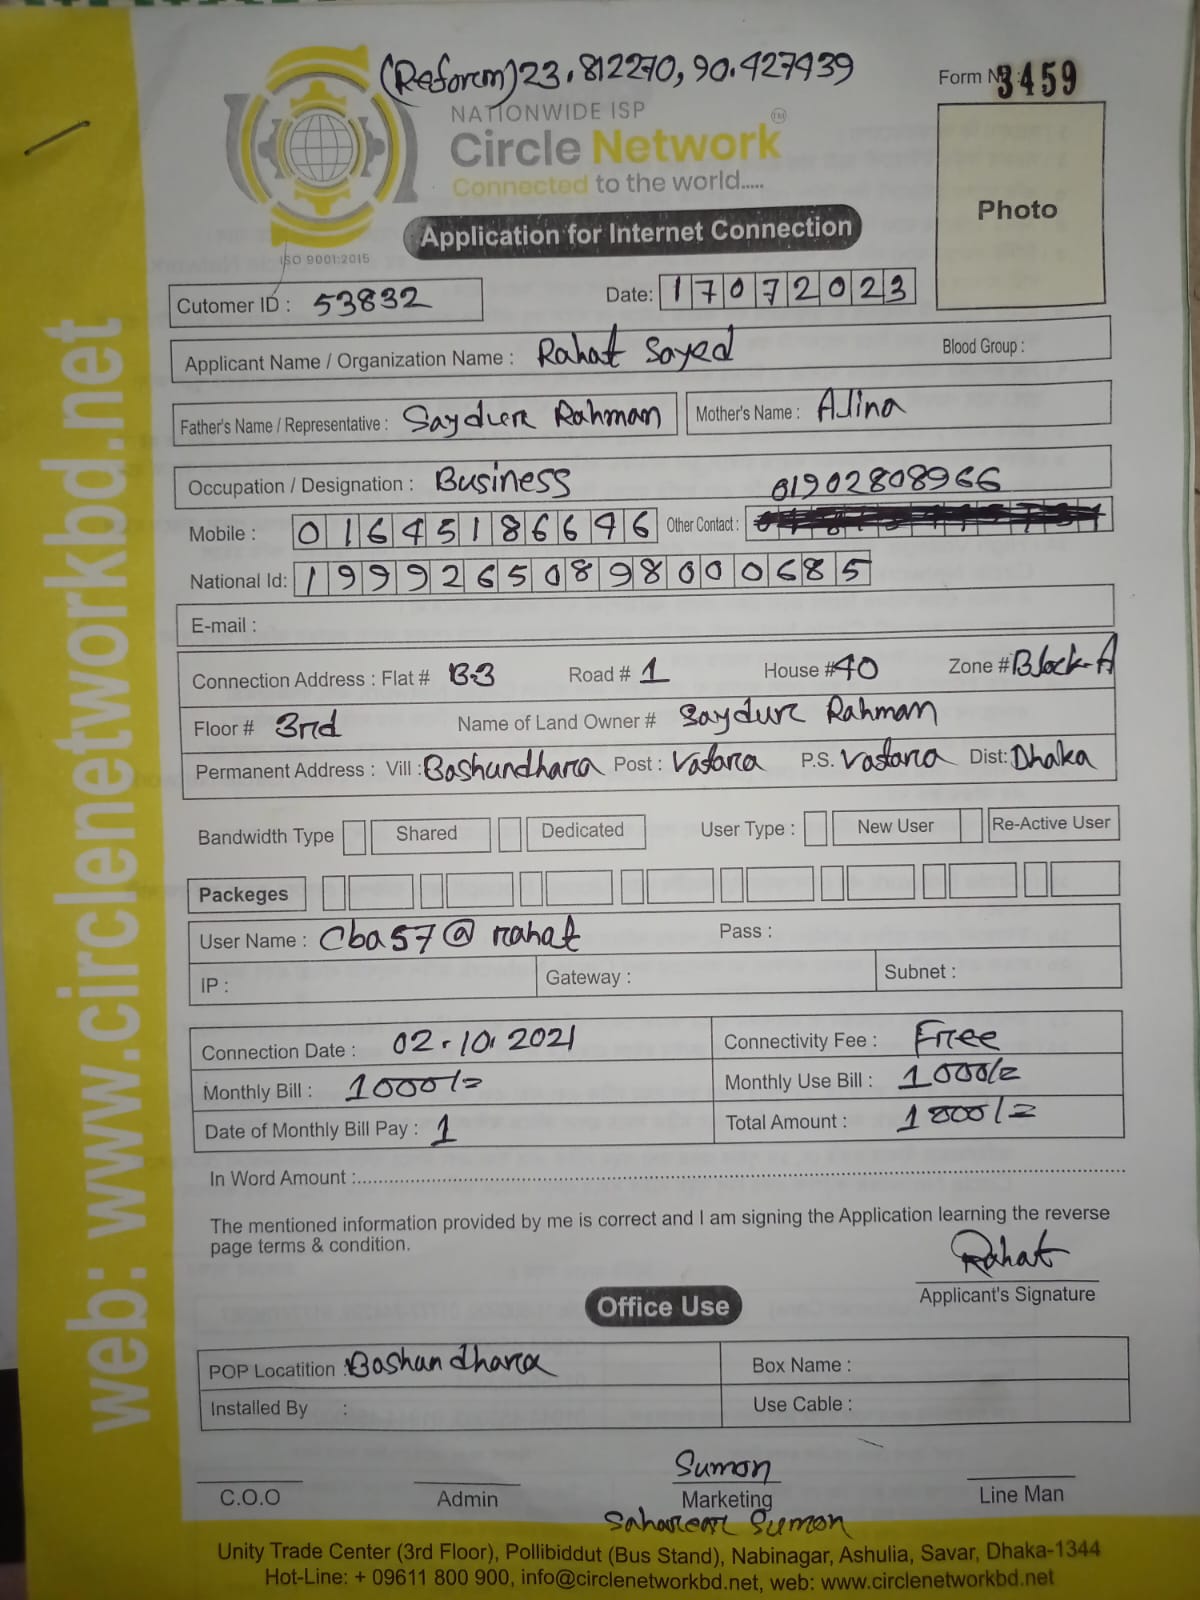 (Reform) 23.812270, 90.427439
Form No: 3459
NATIONWIDE ISP
Circle Network TM
Connected to the world.....
ISO 9001:2015
Photo
Application for Internet Connection
Cutomer ID : 53832
Date: 17072023
Applicant Name / Organization Name : Rahat Sayed Blood Group :
Father's Name / Representative : Saydur Rahman Mother's Name : Alina
Occupation / Designation : Business 01902808966
Mobile : 01645186646 Other Contact :
National Id: 19992650898000685
E-mail :
Connection Address : Flat # B-3 Road # 1 House # 40 Zone # Block-A
Floor # 3rd Name of Land Owner # Saydur Rahman
Permanent Address : Vill : Bashundhara Post : Vatara P.S. Vatara Dist: Dhaka
Bandwidth Type Shared Dedicated User Type : New User Re-Active User
Packeges
User Name : Cba57@rahat Pass :
IP : Gateway : Subnet :
Connection Date : 02.10.2021 Connectivity Fee : Free
Monthly Bill : 1000/= Monthly Use Bill : 1000/=
Date of Monthly Bill Pay : 1 Total Amount : 1000/=
In Word Amount :
The mentioned information provided by me is correct and I am signing the Application learning the reverse
page terms & condition.
Rahat
Applicant's Signature
Office Use
POP Locatition : Bashundhara Box Name :
Installed By : Use Cable :
Sumon
C.O.O Admin Marketing Line Man
Saharear Sumon
Unity Trade Center (3rd Floor), Pollibiddut (Bus Stand), Nabinagar, Ashulia, Savar, Dhaka-1344
Hot-Line: + 09611 800 900, info@circlenetworkbd.net, web: www.circlenetworkbd.net
web: www.circlenetworkbd.net